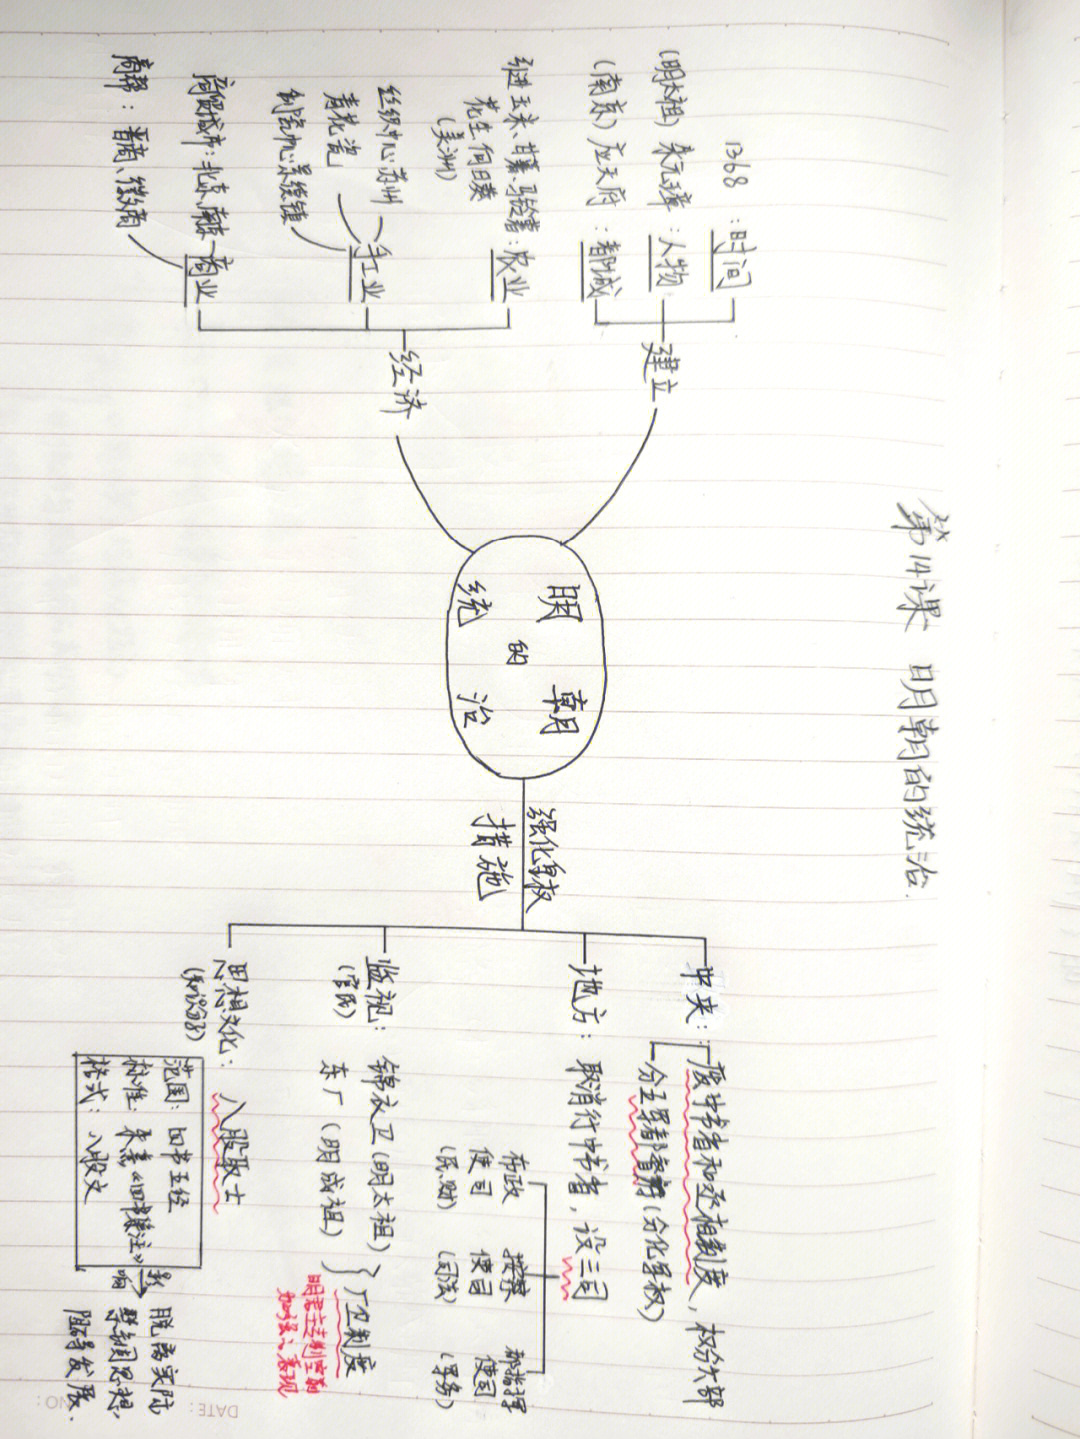 第14课 明朝的统治
明朝
的
统治
建立
时间：1368
人物：朱元璋（明太祖）
都城：应天府（南京）
经济
农业：引进玉米、甘薯、马铃薯、
花生、向日葵
（美洲）
手工业
丝织中心：苏州
青花瓷
制瓷中心：景德镇
商业
商贸城市：北京、南京
商帮：晋商、徽商
强化皇权
措施
中央：废中书省和丞相制度，权分六部
分五军都督府（分化军权）
地方：取消行中书省，设三司
布政使司（民、财）
按察使司（司法）
都指挥使司（军务）
监视：
（官民）
锦衣卫（明太祖）
东厂（明成祖）
厂卫制度
明君主专制空前
加强的表现
思想文化：八股取士
（知识分子）
范围：四书五经
标准：朱熹《四书集注》
格式：八股文
影响
脱离实际
禁锢思想，
阻碍发展.
DATE:
NO